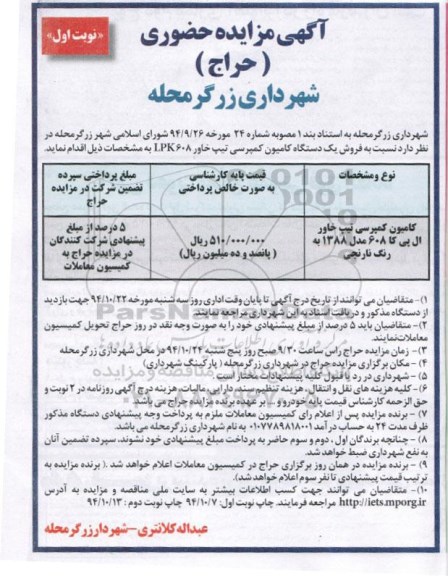 آگهی مزایده حضوری
( حراج )
«نوبت اول»
شهرداری زرگرمحله
شهرداری زرگرمحله به استناد بند ۱ مصوبه شماره ۲۴ مورخه ۹۴/۹/۲۶ شورای اسلامی شهر زرگرمحله در
نظر دارد نسبت به فروش یک دستگاه کامیون کمپرسی تیپ خاور LPK۶۰۸ به مشخصات ذیل اقدام نماید.
نوع ومشخصات
قیمت پایه کارشناسی
به صورت خالص پرداختی
مبلغ پرداختی سپرده
تضمین شرکت در مزایده
حراج
کامیون کمپرسی تیپ خاور
ال پی کا ۶۰۸ مدل ۱۳۸۸ به
رنگ نارنجی
۵۱۰/۰۰۰/۰۰۰ ریال
( پانصد و ده میلیون ریال)
۵ درصد از مبلغ
پیشنهادی شرکت کنندگان
در مزایده حراج به
کمیسیون معاملات
۱)- متقاضیان می توانند از تاریخ درج آگهی تا پایان وقت اداری روز سه شنبه مورخه ۹۴/۱۰/۲۲ جهت بازدید
از دستگاه مذکور و دریافت اسناد به این شهرداری مراجعه نمایند.
۲)- متقاضیان باید ۵ درصد از مبلغ پیشنهادی خود را به صورت وجه نقد در روز حراج تحویل کمیسیون
معاملات نمایند.
۳)- زمان مزایده حراج راس ساعت ۹/۳۰ صبح روز پنج شنبه ۹۴/۱۰/۲۴ در محل شهرداری زرگرمحله
۴)- مکان برگزاری مزایده حراج در شهرداری زرگرمحله ( پارکینگ شهرداری)
۵)- شهرداری در رد یا قبول کلیه پیشنهادات مختار است
۶)- کلیه هزینه های نقل و انتقال، هزینه تنظیم سند، دارایی، مالیات، هزینه درج آگهی روزنامه در ۲ نوبت و
حق الزحمه کارشناس قیمت پایه خودرو و ... بر عهده برنده مزایده حراج می باشد.
۷)- برنده مزایده پس از اعلام رای کمیسیون معاملات ملزم به پرداخت وجه پیشنهادی دستگاه مذکور
ظرف مدت ۲۴ به حساب درآمد ۰۱۰۷۷۸۹۸۱۸۰۰۱ به نام شهرداری زرگرمحله می باشد.
۸)- چنانچه برندگان اول ، دوم و سوم حاضر به پرداخت مبلغ پیشنهادی خود نشوند، سپرده تضمین آنان
به نفع شهرداری ضبط خواهد شد.
۹)- برنده مزایده در همان روز برگزاری حراج در کمیسیون معاملات اعلام خواهد شد .( برنده مزایده به
ترتیب قیمت پیشنهادی تا نفر سوم اعلام خواهد شد).
۱۰)- متقاضیان می توانند جهت کسب اطلاعات بیشتر به سایت ملی مناقصه و مزایده به آدرس
http://iets.mporg.ir مراجعه فرمایند. چاپ نوبت اول: ۹۴/۱۰/۷ چاپ نوبت دوم : ۹۴/۱۰/۱۳
عبداله کلانتری - شهردار زرگرمحله